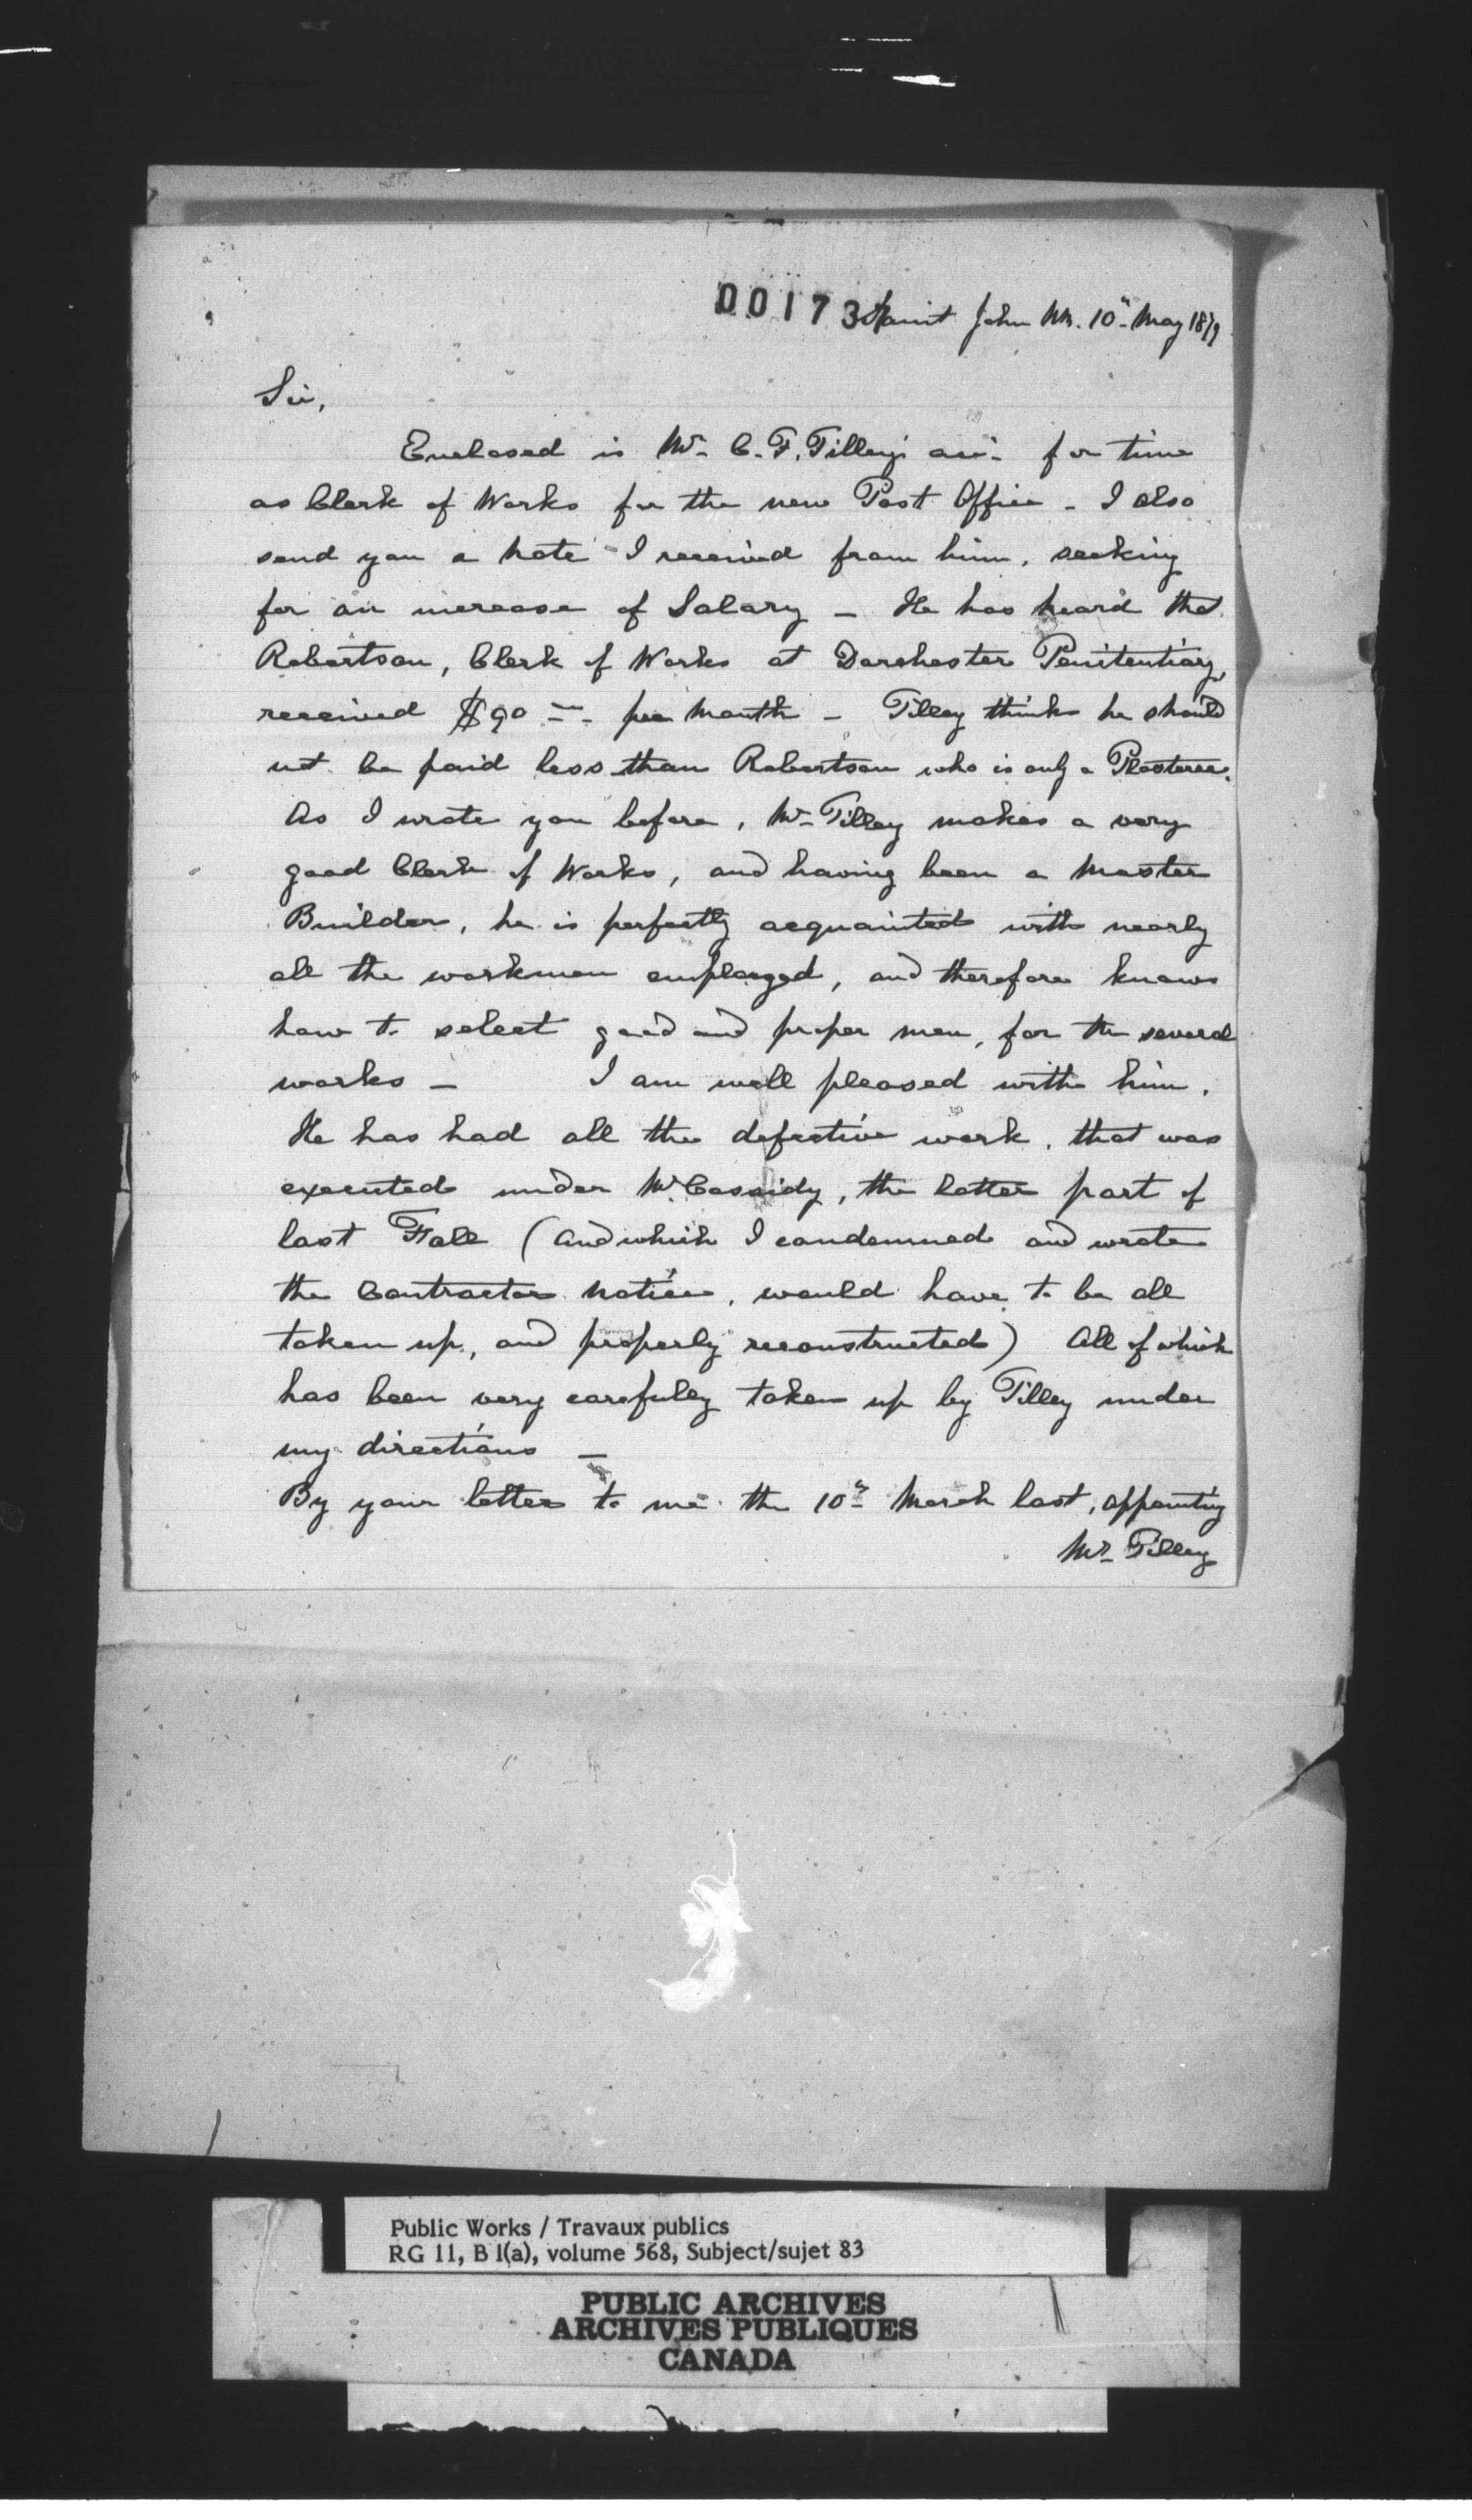 00173 Saint John NB. 10th May 1879
Sir,
Enclosed is Mr. C. F. Tilley's acc. for time
as Clerk of Works for the new Post Office - I also
send you a note I received from him, seeking
for an increase of Salary - He has heard that
Robertson, Clerk of Works at Dorchester Penitentiary,
received $90 per Month - Tilley thinks he should
not be paid less than Robertson who is only a Plasterer.
As I wrote you before, Mr Tilley makes a very
good Clerk of Works, and having been a Master
Builder, he is perfectly acquainted with nearly
all the workmen employed, and therefore knows
how to select good and proper men, for the several
works - I am well pleased with him.
He has had all the defective work, that was
executed under Mr Cassidy, the latter part of
last Fall (and which I condemned and wrote
the Contractor notice, would have to be all
taken up, and properly reconstructed) All of which
has been very carefully taken up by Tilley under
my directions -
By your letter to me the 10th March last, appointing
Mr Tilley
Public Works / Travaux publics
RG 11, B 1(a), volume 568, Subject/sujet 83
PUBLIC ARCHIVES
ARCHIVES PUBLIQUES
CANADA